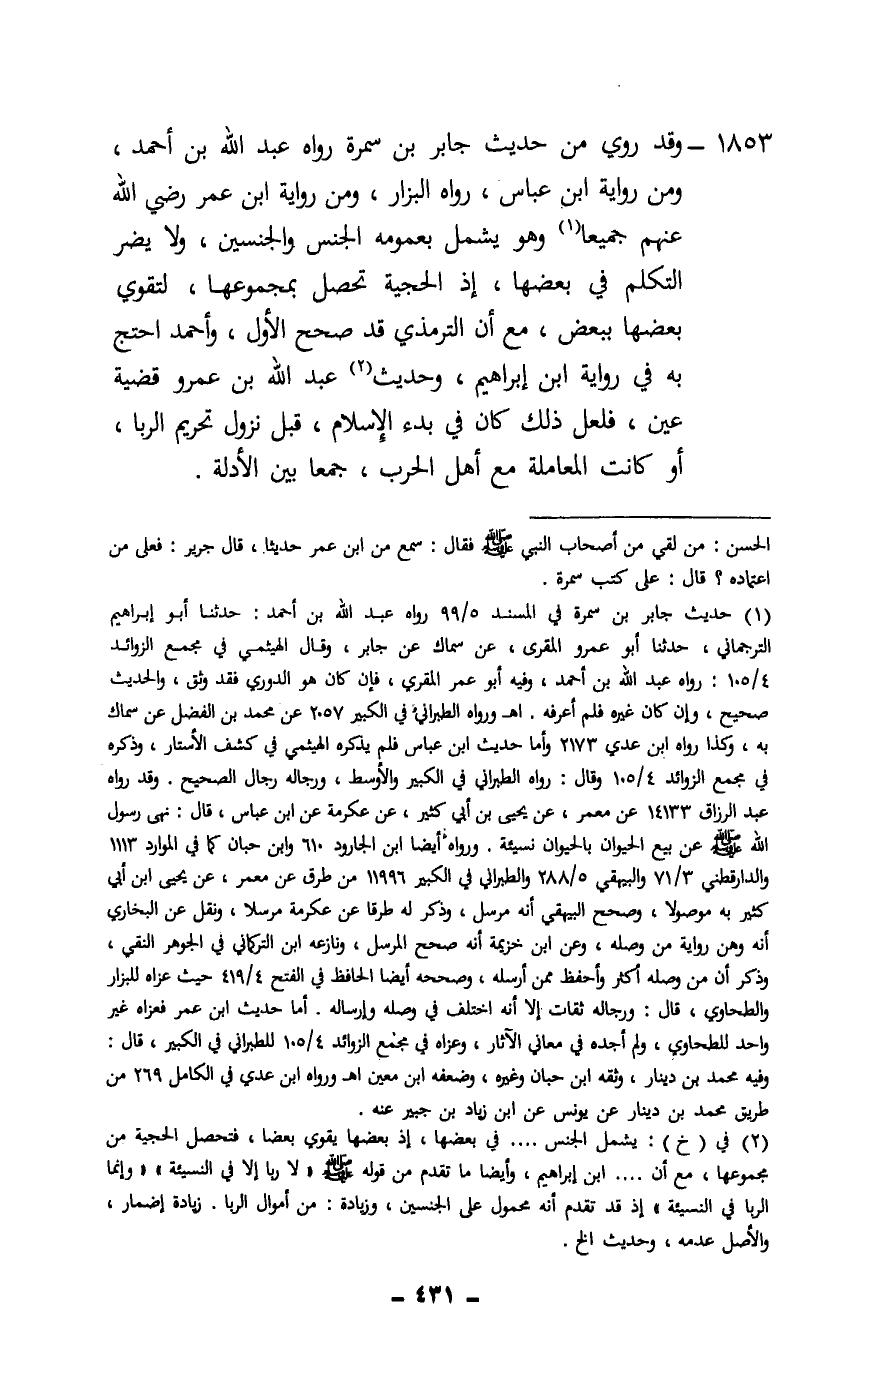 ١٨٥٣ – وقد روي من حديث جابر بن سمرة رواه عبد الله بن أحمد ،
ومن رواية ابن عباس ، رواه البزار ، ومن رواية ابن عمر رضي الله
عنهم جميعا(١) وهو يشمل بعمومه الجنس والجنسين ، ولا يضر
التكلم في بعضها ، إذ الحجية تحصل بمجموعها ، لتقوي
بعضها ببعض ، مع أن الترمذي قد صحح الأول ، وأحمد احتج
به في رواية ابن إبراهيم ، وحديث(٢) عبد الله بن عمرو قضية
عين ، فلعل ذلك كان في بدء الإسلام ، قبل نزول تحريم الربا ،
أو كانت المعاملة مع أهل الحرب ، جمعا بين الأدلة .
الحسن : من لقي من أصحاب النبي ﷺ فقال : سمع من ابن عمر حديثا ، قال جرير : فعلى من
اعتماده ؟ قال : على كتب سمرة .
(١) حديث جابر بن سمرة في المسند ٩٩/٥ رواه عبد الله بن أحمد : حدثنا أبو إبراهيم
الترجماني ، حدثنا أبو عمرو المقرى ، عن سماك عن جابر ، وقال الهيثمي في مجمع الزوائد
١٠٥/٤ : رواه عبد الله بن أحمد ، وفيه أبو عمر المقري ، فإن كان هو الدوري فقد وثق ، والحديث
صحيح ، وإن كان غيره فلم أعرفه . اهـ ورواه الطبراني في الكبير ٢٠٥٧ عن محمد بن الفضل عن سماك
به ، وكذا رواه ابن عدي ٢١٧٣ وأما حديث ابن عباس فلم يذكره الهيثمي في كشف الأستار ، وذكره
في مجمع الزوائد ١٠٥/٤ وقال : رواه الطبراني في الكبير والأوسط ، ورجاله رجال الصحيح . وقد رواه
عبد الرزاق ١٤١٣٣ عن معمر ، عن يحيى بن أبي كثير ، عن عكرمة عن ابن عباس ، قال : نهى رسول
الله ﷺ عن بيع الحيوان بالحيوان نسيئة . ورواه أيضا ابن الجارود ٦١٠ وابن حبان كما في الموارد ١١١٣
والدارقطني ٧١/٣ والبيهقي ٢٨٨/٥ والطبراني في الكبير ١١٩٩٦ من طرق عن معمر ، عن يحيى ابن أبي
كثير به موصولا ، وصحح البيهقي أنه مرسل ، وذكر له طرقا عن عكرمة مرسلا ، ونقل عن البخاري
أنه وهن رواية من وصله ، وعن ابن خزيمة أنه صحح المرسل ، ونازعه ابن التركماني في الجوهر النقي ،
وذكر أن من وصله أكثر وأحفظ ممن أرسله ، وصححه أيضا الحافظ في الفتح ٤١٩/٤ حيث عزاه للبزار
والطحاوي ، قال : ورجاله ثقات إلا أنه اختلف في وصله وإرساله . أما حديث ابن عمر فعزاه غير
واحد للطحاوي ، ولم أجده في معاني الآثار ، وعزاه في مجمع الزوائد ١٠٥/٤ للطبراني في الكبير ، قال :
وفيه محمد بن دينار ، وثقه ابن حبان وغيره ، وضعفه ابن معين اهـ ورواه ابن عدي في الكامل ٢٦٩ من
طريق محمد بن دينار عن يونس عن ابن زياد بن جبير عنه .
(٢) في ( خ ) : يشمل الجنس .... في بعضها ، إذ بعضها يقوي بعضا ، فتحصل الحجية من
مجموعها ، مع أن .... ابن إبراهيم ، وأيضا ما تقدم من قوله ﷺ « لا ربا إلا في النسيئة » « وإنما
الربا في النسيئة » إذ قد تقدم أنه محمول على الجنسين ، وزيادة : من أموال الربا . زيادة إضمار ،
والأصل عدمه ، وحديث الخ .
– ٤٣١ –